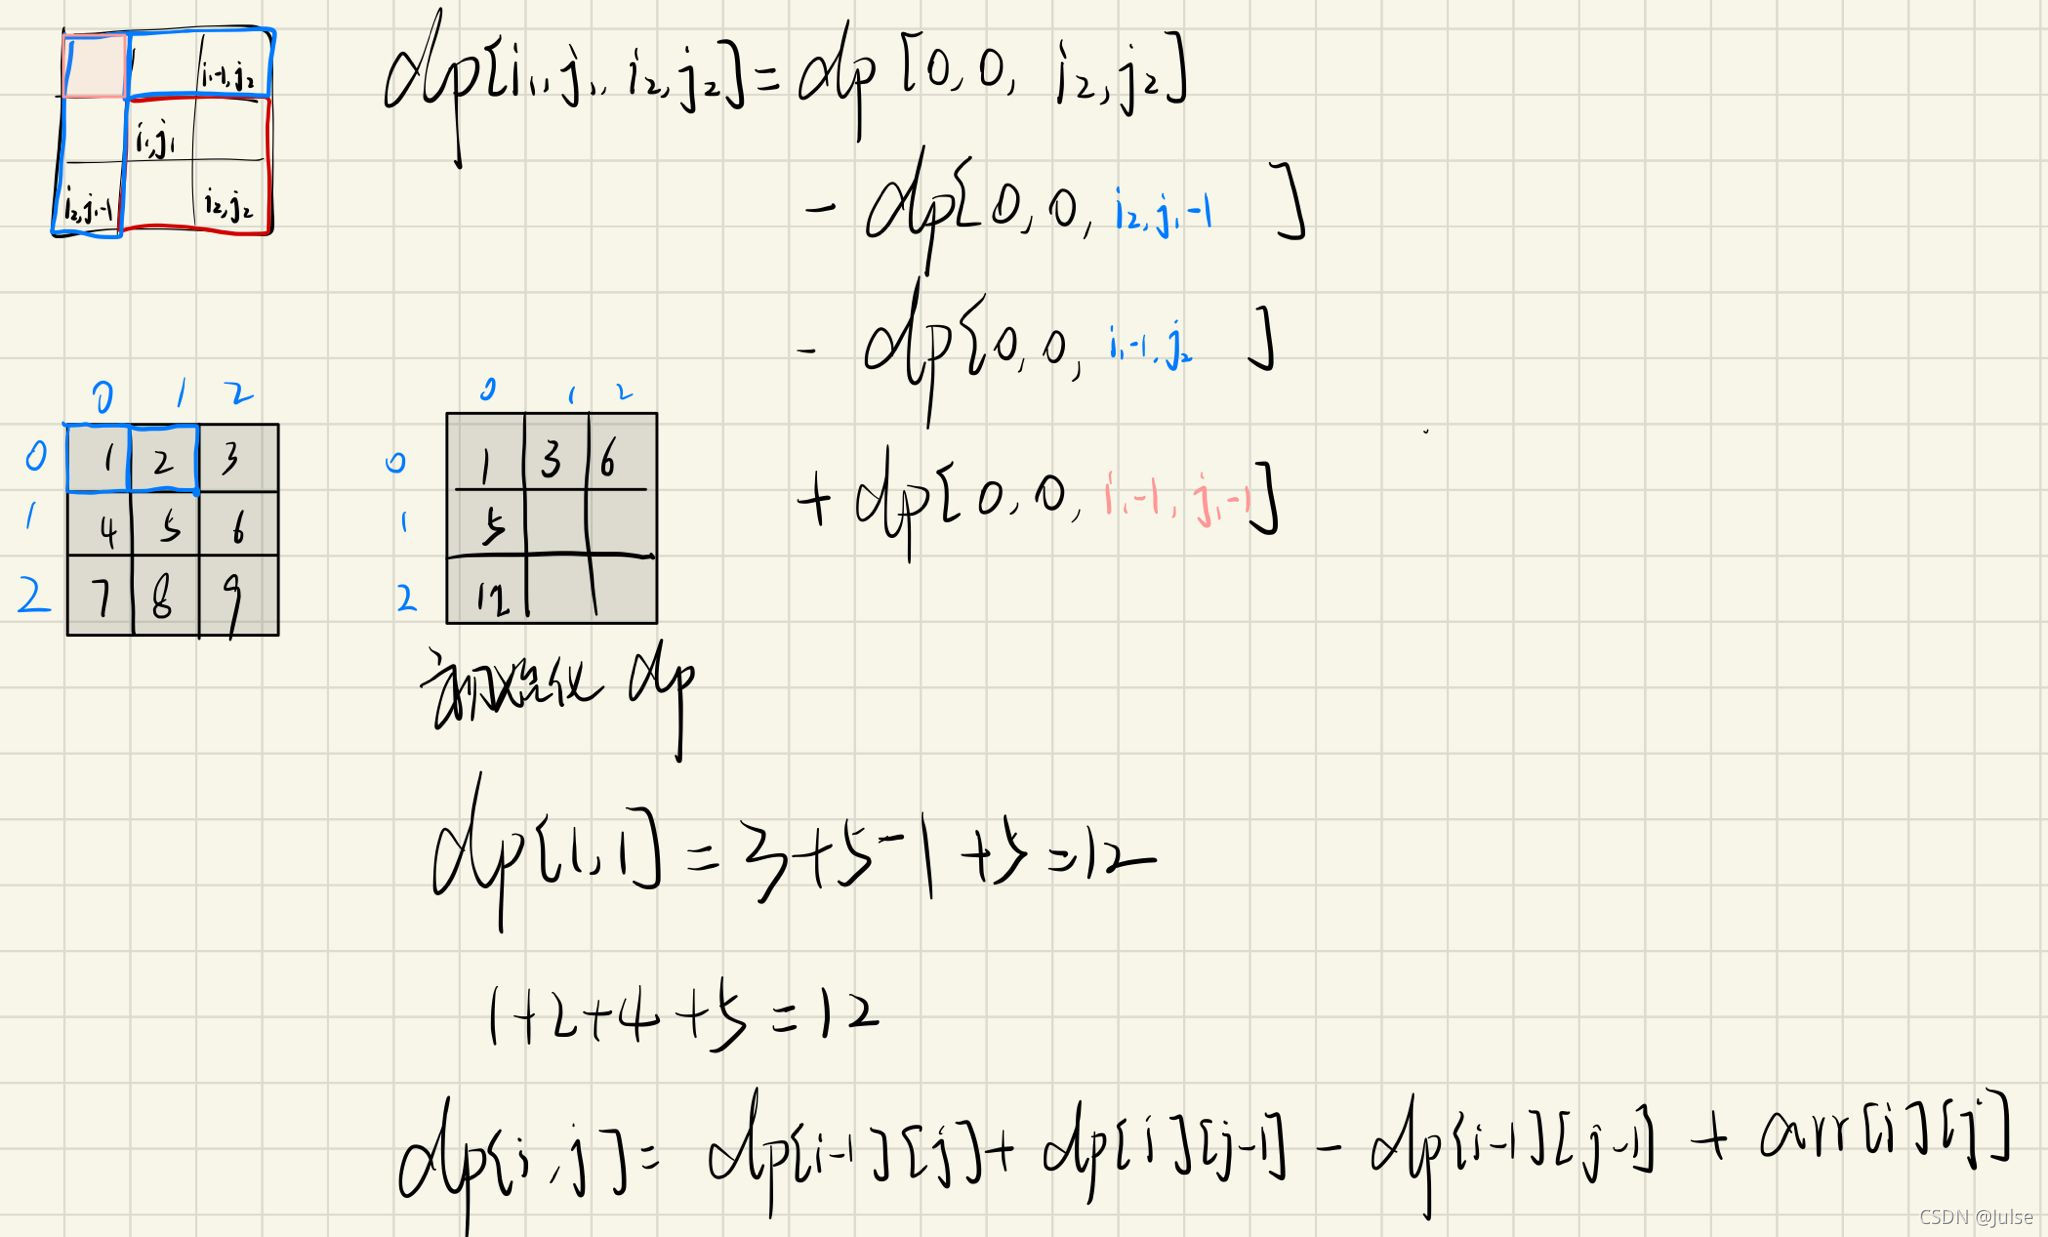 i₁-1,j₂
i₁,j₁
i₂,j₁-1 i₂,j₂
dp[i₁,j₁,i₂,j₂]=dp[0,0,i₂,j₂]
-dp[0,0,i₂,j₁-1]
-dp[0,0,i₁-1,j₂]
+dp[0,0,i₁-1,j₁-1]
0 1 2
0 1 2 3
1 4 5 6
2 7 8 9
0 1 2
0 1 3 6
1 5
2 12
初始化 dp
dp[1,1]=3+5-1+5=12
1+2+4+5=12
dp[i,j]=dp[i-1][j]+dp[i][j-1]-dp[i-1][j-1]+arr[i][j]
CSDN @Julse